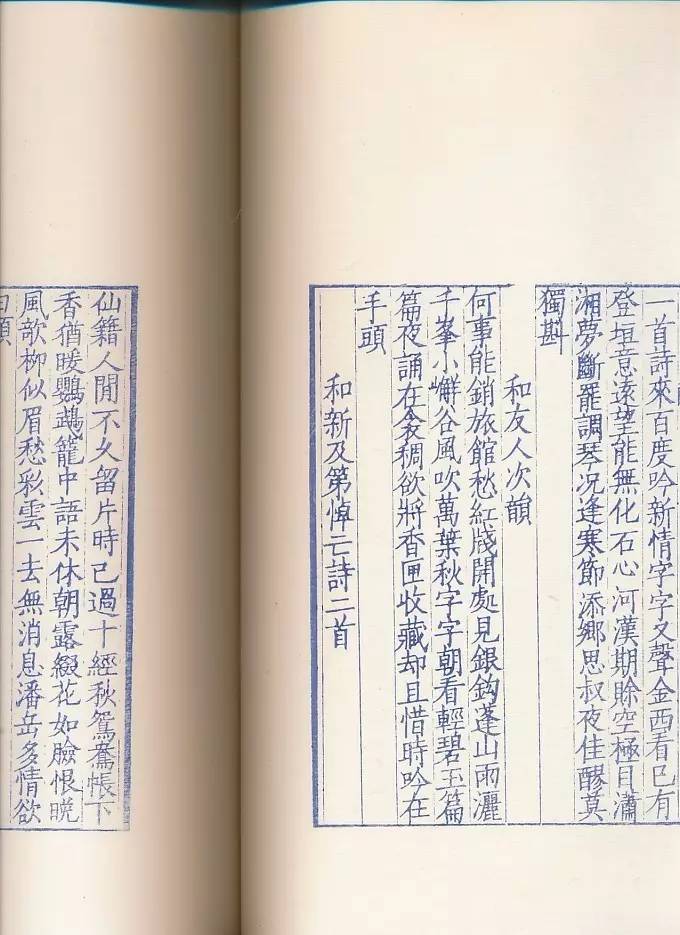 一首詩來百度吟新情字字又聲金西看已有
登垣意遠望能無化石心河漢期賒空極目瀟
湘夢斷罷調琴况逢寒節添鄉思叔夜佳醪莫
獨斟
和友人次韻
何事能銷旅館愁紅牋開處見銀鈎蓬山雨灑
千峯小嶰谷風吹萬葉秋字字朝看輕碧玉篇
篇夜誦在衾稠欲將香匣收藏却且惜時吟在
手頭
和新及第悼亡詩二首
仙籍人閒不久留片時已過十經秋鴛鴦帳下
香猶暖鸚鵡籠中語未休朝露綴花如臉恨晚
風欹柳似眉愁彩雲一去無消息潘岳多情欲
白頭